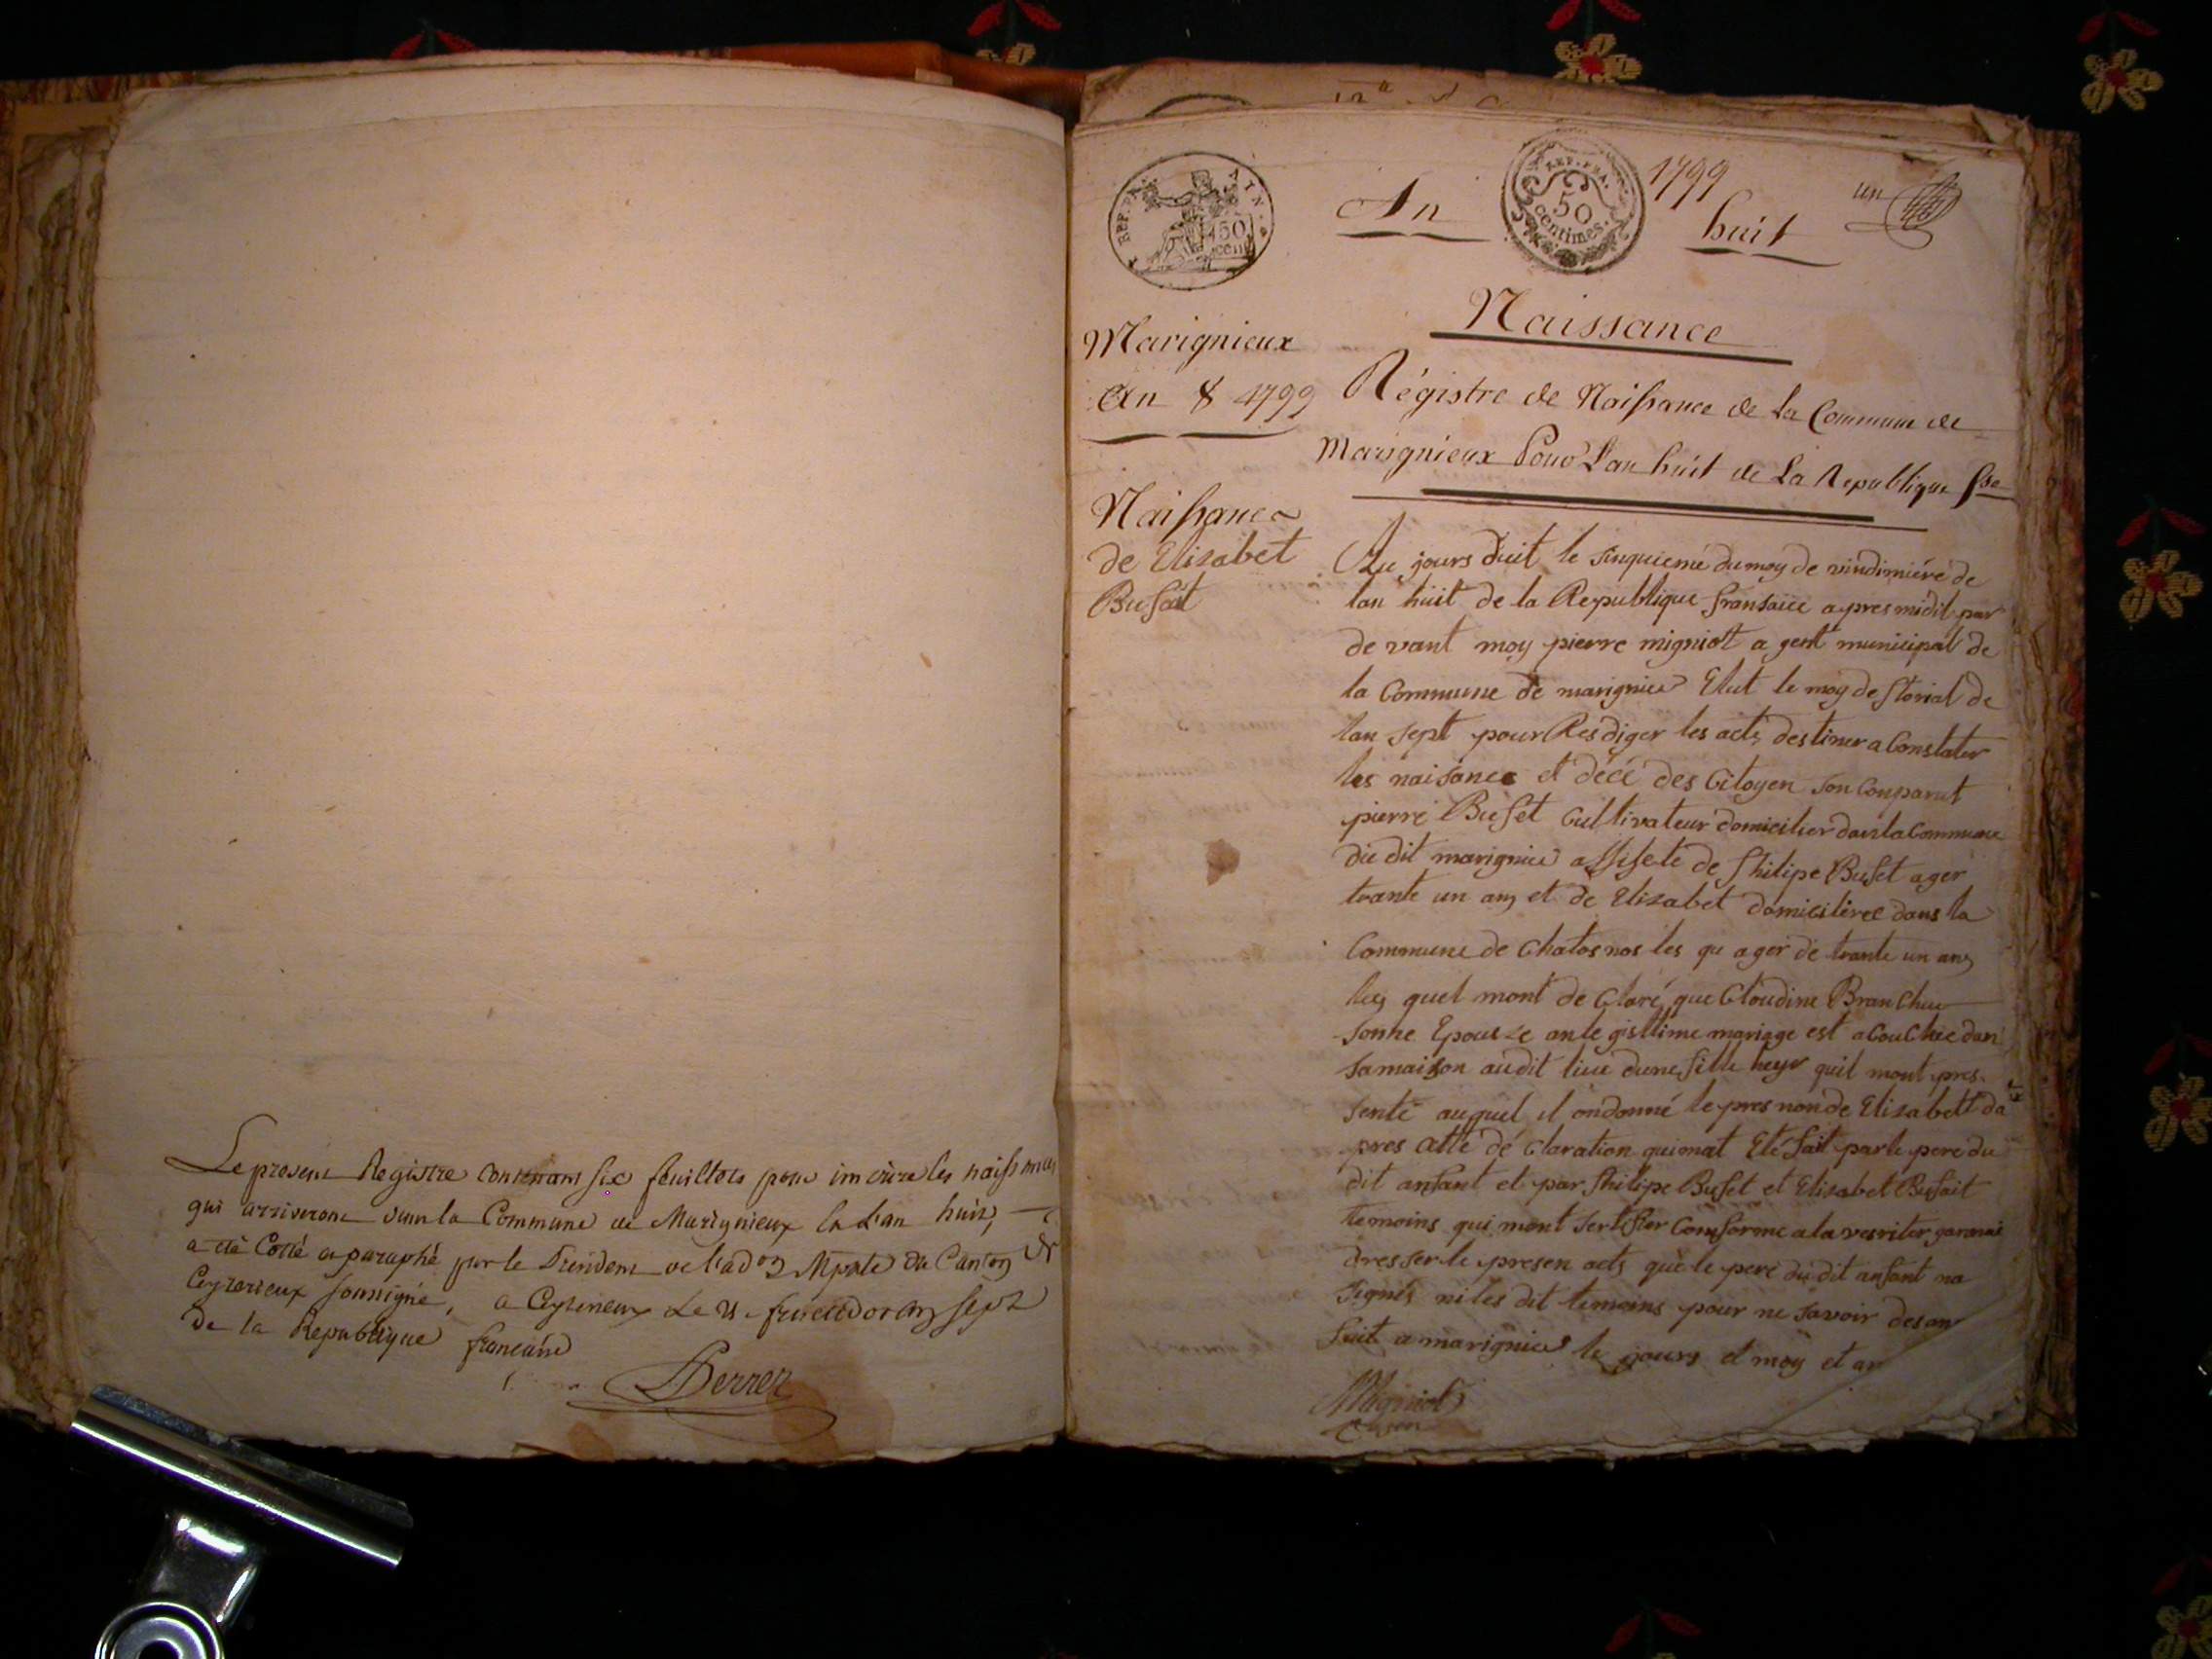 Le present Registre contenant six feuillets pour inscrire les naissances
qui arriveront dans la Commune de Marignieux la L'an huit,
a été Cotté et paraphé par le President de l'ad.on Mpale du Canton de
Ceyzerieux soussigné, a Ceyzerieux Le 21 fructidor an sept
De la Republique francaise
Derrez
REP. FRA. AIN.
50 cent
An
REP. FRA.
50
centimes.
1799
huit
un
Marignieux
An 8 1799
Naissance
Régistre de Naissance de La Commune de
Marignieux Pour L'an huit de La Republique fse
Naissance
de Elisabet
Bufet
Du jours duit le sinquieme du moy de vindimiére de
lan hüit de la Republique fransaice apres midit par
de vant moy pierre migniot a gent municipal de
la Commune de marignieu Elut le moy de florial de
lan sept pour Resdiger les acts destiner a Constater
les naisance et décé des Citoyen son Comparut
pierre Bufet Cultivateur domicilier dans la Commune
du dit marignieu assisete de philipe Bufet ager
trante un ans et de Elizabet domicilieree dans la
Commune de Chatosnos les qu ager de trante un ans
les quel mont de Claré que Cloudine Branchu
sonne Epousse an le gistime mariage est a Couchee dan
sa maison audit lieu dune fille heyr quil mont pres
senté auquel il ondonné le pres non de Elizabett da
pres cette dé Claration qui mat Eté fait par le pere du
dit anfant et par philipe Bufet et Elisabet Bufait
temoins qui mont sertifier Comforme a la verriter
dresser le presen acts que le pere du dit anfant na
signés ni les dit temoins pour ne savoir desan
fait a marignieu le jours et moy et an
Migniot
agen